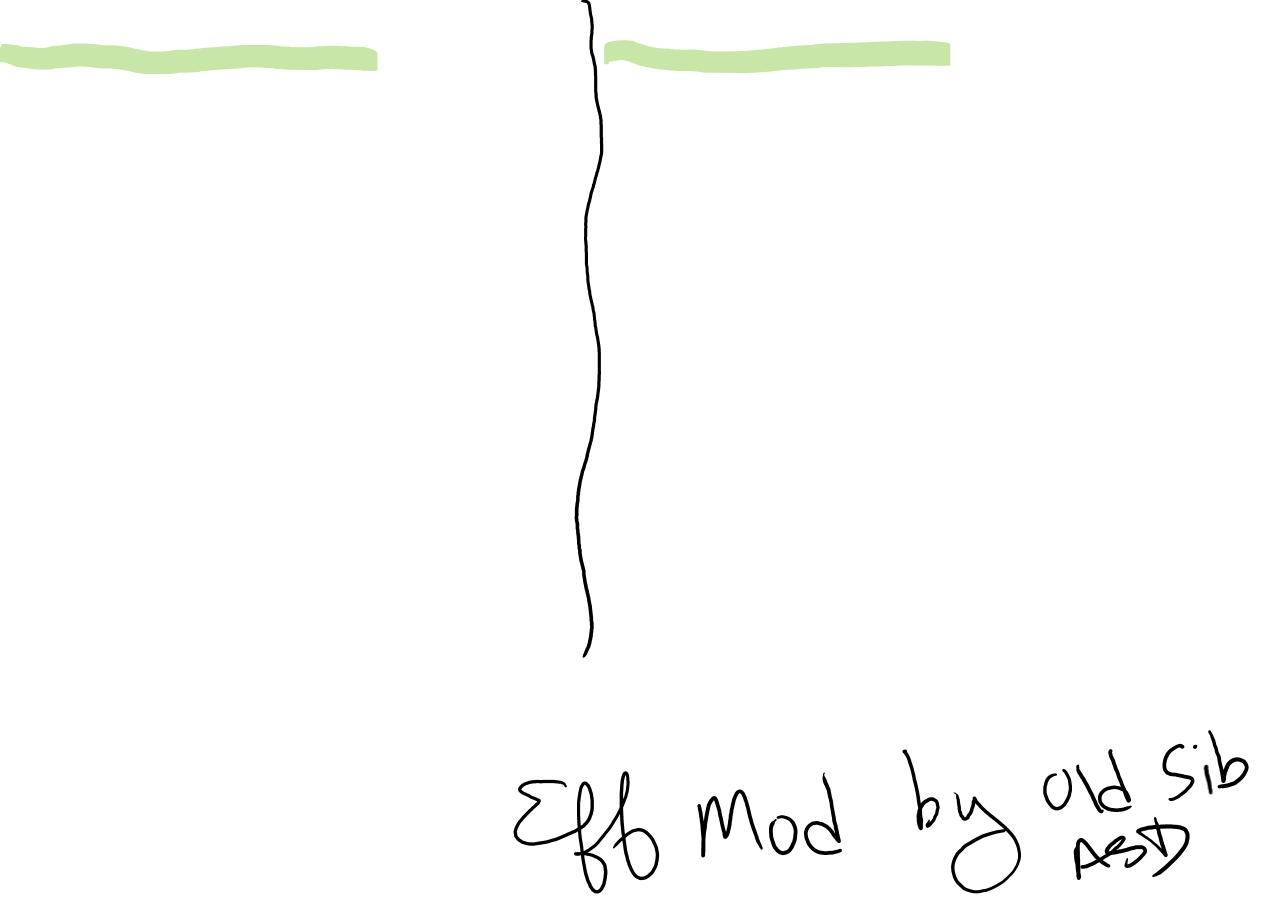 Eff Mod by Old Sib
ASD